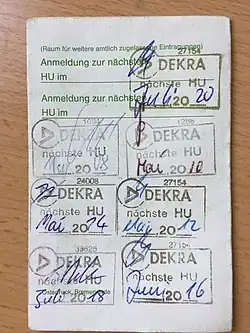 (Raum für weitere amtlich zugelassene Eintragungen)
27154
Anmeldung zur nächsten
HU im
DEKRA
nächste HU
Anmeldung zur nächsten
HU im
Juli 20 20
DEKRA
nächste HU
20 08
DEKRA
nächste HU
Mai 20 10
24008
DEKRA
nächste HU
Mai 20 14
27154
DEKRA
nächste HU
Mai 20 12
DEKRA
nächste HU
Juli 20 18
27154
DEKRA
nächste HU
Juni 20 16